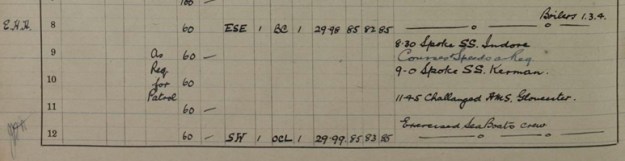 100
Boilers 1.3.4.
E.H.H. 8 60 ESE 1 BC 1 29.98 85 82 85
8.30 Spoke S.S. Indore
9 As 60 — Courses & Speeds as Req.
Req 9-0 Spoke S.S. Kerman.
10 for 60
Patrol 11.45 Challanged H.M.S. Gloucester.
11 60 —
Exercised Sea Boats crew
12 60 — SW 1 OCL 1 29.99 85 83 85